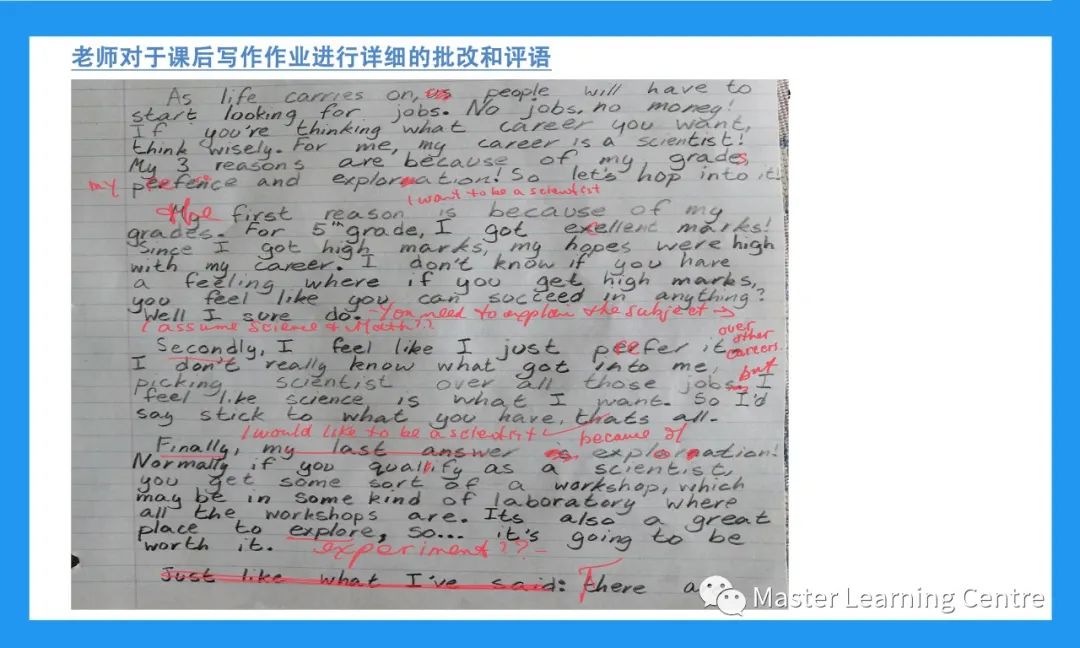 老师对于课后写作作业进行详细的批改和评语
As life carries on, us people will have to
start looking for jobs. No jobs, no money!
If you're thinking what career you want,
think wisely. For me, my career is a scientist!
My 3 reasons are because of my grades
my preference and exploration! So let's hop into it!
I want to be a scientist
The first reason is because of my
grades. For 5th grade, I got exellent marks!
Since I got high marks, my hopes were high
with my career. I don't know if you have
a feeling where if you get high marks,
you feel like you can succeed in anything?
Well I sure do. - You need to explain the subject →
I assume Science & Math??
over
other
careers.
Secondly, I feel like I just prefer it
I don't really know what got into me,
but
picking scientist over all those jobs, I
feel like science is what I want. So I'd
say stick to what you have, thats all.
I would like to be a scientist because of
Finally, my last answer is exploration!
Normally if you qualify as a scientist,
you get some sort of a workshop, which
may be in some kind of laboratory where
all the workshops are. Its also a great
place to explore, so... it's going to be
worth it. experiment??-
Just like what I've said: There a
Master Learning Centre